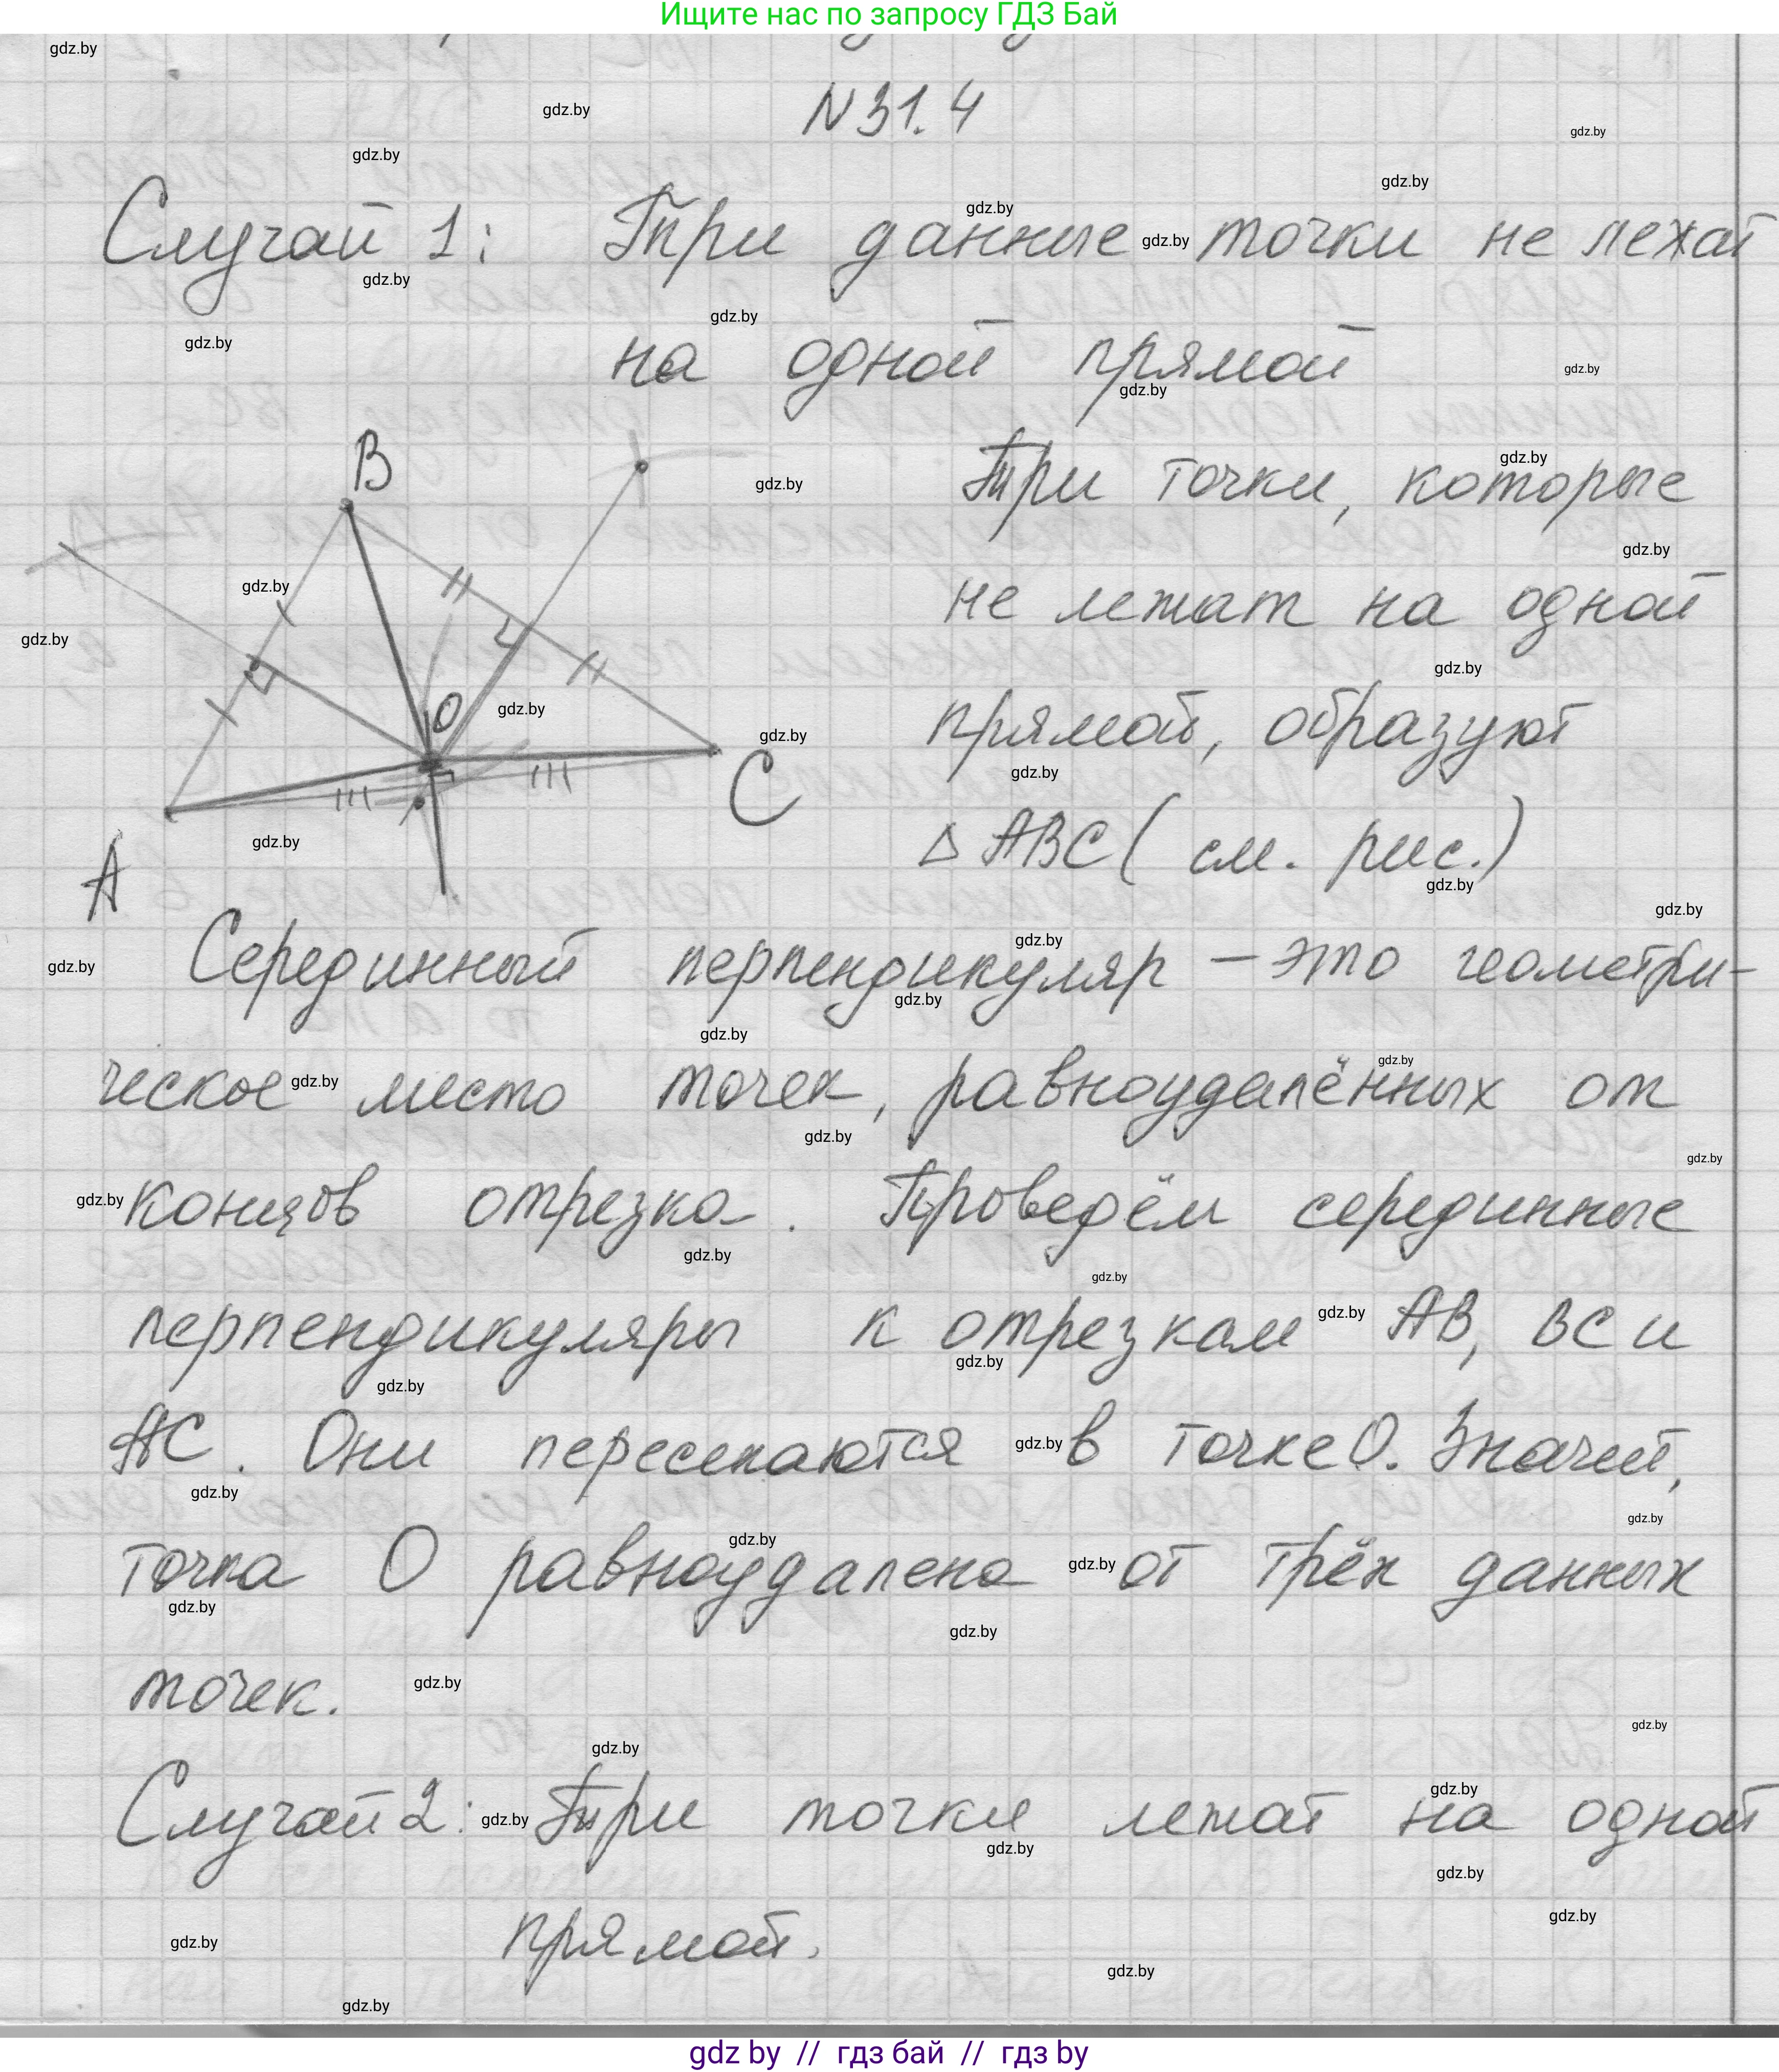 Ищите нас по запросу ГДЗ Бай
N 31.4
Случай 1: Три данные точки не лежат
на одной прямой
B
Три точки, которые
не лежат на одной
O
прямой, образуют
C
△ ABC ( см. рис.)
A
Серединный перпендикуляр – это геометри-
ческое место точек, равноудалённых от
концов отрезка. Проведём серединные
перпендикуляры к отрезкам AB, BC и
AC. Они пересекаются в точке O. Значит,
точка O равноудалена от трёх данных
точек.
Случай 2: Три точки лежат на одной
прямой.
gdz by // гдз бай // гдз by